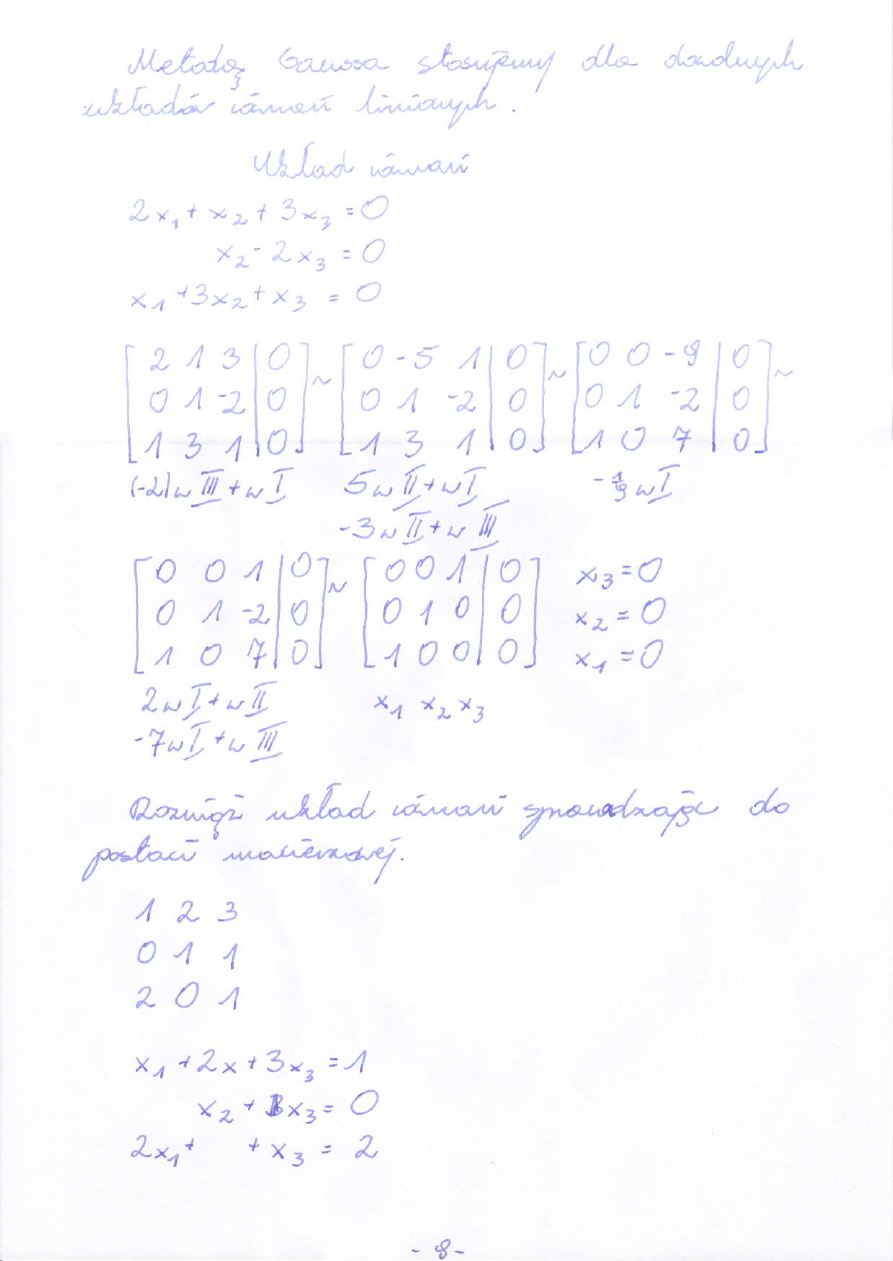 Metodą Gaussa stosujemy dla dowolnych
układów równań liniowych.
Układ równań
2x₁ + x₂ + 3x₃ = 0
x₂ - 2x₃ = 0
x₁ + 3x₂ + x₃ = 0
[ 2 1 3 | 0 ] ~ [ 0 -5 1 | 0 ] ~ [ 0 0 -9 | 0 ] ~
[ 0 1 -2 | 0 ] [ 0 1 -2 | 0 ] [ 0 1 -2 | 0 ]
[ 1 3 1 | 0 ] [ 1 3 1 | 0 ] [ 1 0 7 | 0 ]
(-2) w III + w I 5 w II + w I -1/9 w I
-3 w II + w III
[ 0 0 1 | 0 ] ~ [ 0 0 1 | 0 ] x₃ = 0
[ 0 1 -2 | 0 ] [ 0 1 0 | 0 ] x₂ = 0
[ 1 0 7 | 0 ] [ 1 0 0 | 0 ] x₁ = 0
2 w I + w II x₁ x₂ x₃
-7 w I + w III
Rozwiąż układ równań sprowadzając do
postaci macierzowej.
1 2 3
0 1 1
2 0 1
x₁ + 2x + 3x₃ = 1
x₂ + 1x₃ = 0
2x₁ + + x₃ = 2
- 8 -